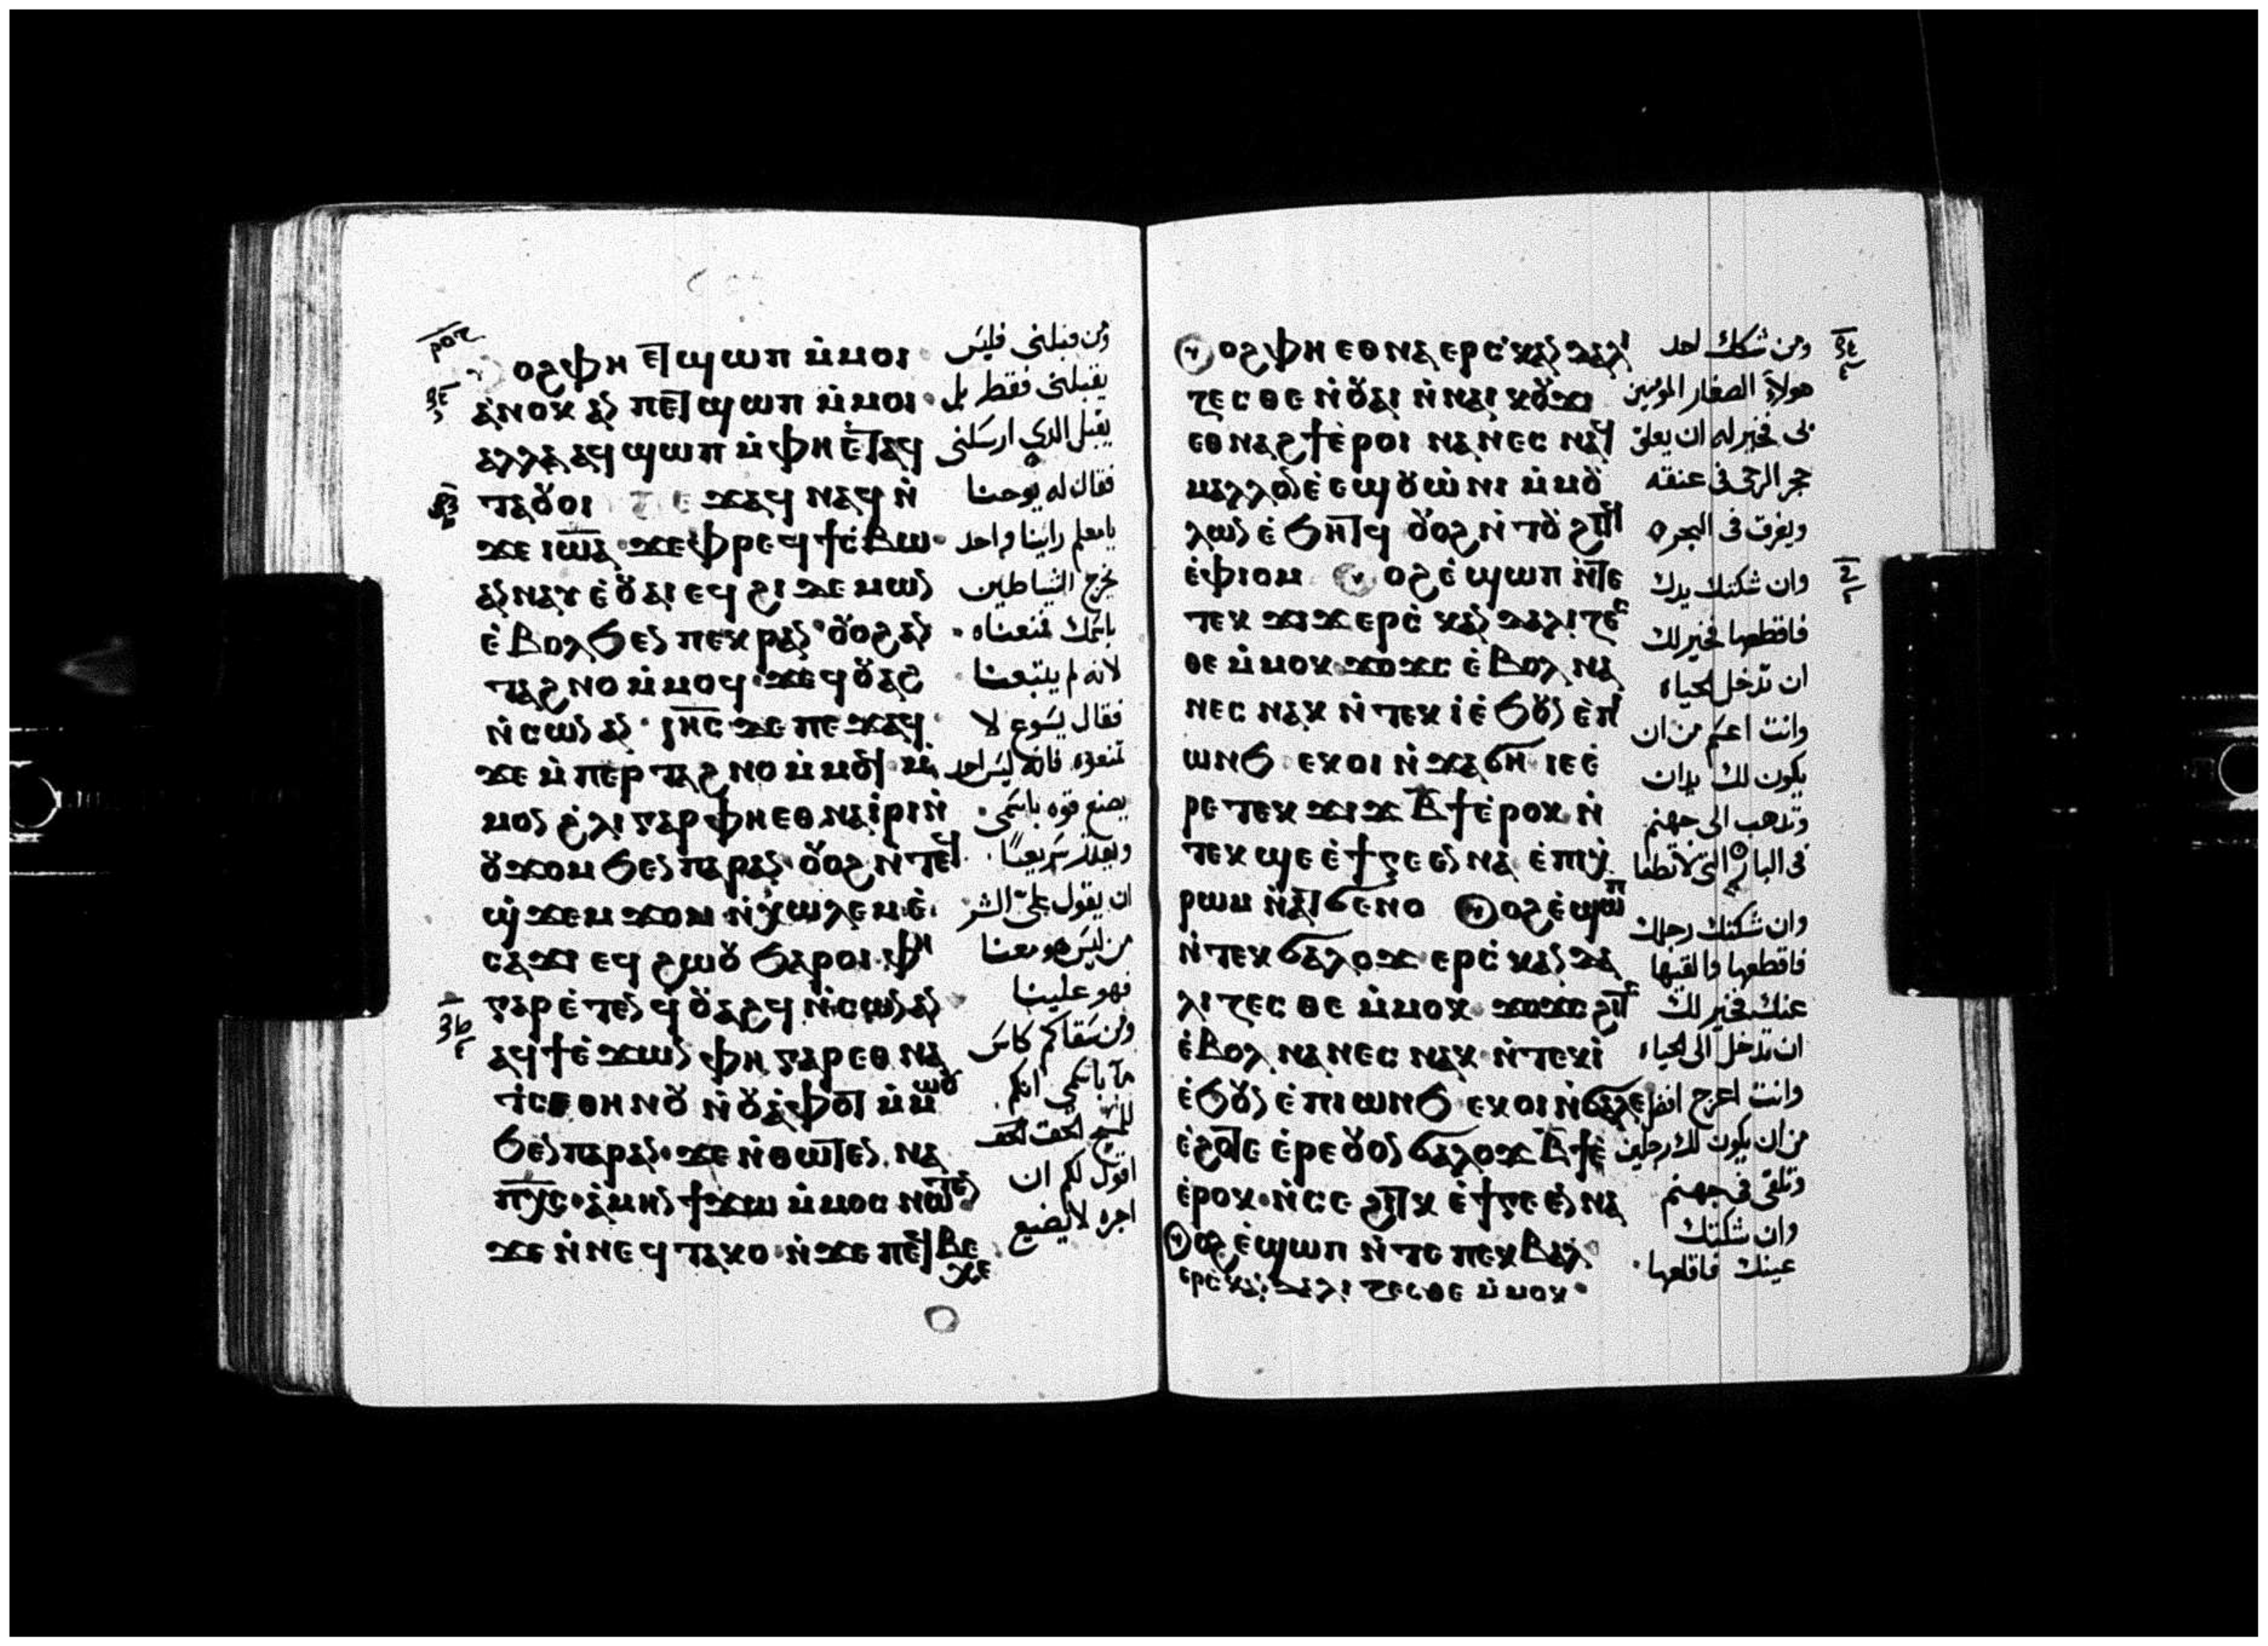 ⲟϩ ⲫⲏ ⲉⲧϣⲱⲡ ⲙ̇ⲙⲟⲓ
ⲁ̇ⲛⲟⲕ ⲁⲛ ⲡⲉⲧϣⲱⲡ ⲙ̇ⲙⲟⲓ
ⲁⲗⲗⲁ ⲁϥϣⲱⲡ ⲙ̇ⲫⲏ ⲉ̇ⲧⲁϥ
ⲧⲁȣⲟⲓ ⲡⲉϫⲁϥ ⲛⲁϥ ⲛ̇
ϫⲉ ⲓⲱ̅ⲁ̅ ϫⲉ ⲫⲣⲉϥϯⲥ̇ⲃⲱ
ⲁⲛⲛⲁⲩ ⲉ̇ȣⲁⲓ ⲉϥϩⲓ ⲇⲉⲙⲱⲛ
ⲉ̇ⲃⲟⲗ ϧⲉⲛ ⲡⲉⲕⲣⲁⲛ ȣⲟϩ ⲁⲛ
ⲧⲁϩⲛⲟ ⲙ̇ⲙⲟϥ ϫⲉ ϥȣⲁϩ
ⲛ̇ⲥⲱⲛ ⲁⲛ ⲓⲏ̅ⲥ̅ ⲇⲉ ⲡⲉϫⲁϥ
ϫⲉ ⲙ̇ⲡⲉⲣⲧⲁϩⲛⲟ ⲙ̇ⲙⲟϥ ⲙ̇
ⲙⲟⲛ ϩ̇ⲗⲓ ⲅⲁⲣ ⲫⲏ ⲉⲑⲛⲁⲓ̇ⲣⲓ ⲛ̇
ȣϫⲟⲙ ϧⲉⲛ ⲡⲁⲣⲁⲛ ȣⲟϩ ⲛ̇ⲧⲉϥ
ϣ̇ϫⲉⲙϫⲟⲙ ⲛ̇ⲭ̇ⲱⲗⲉⲙ ⲉ̇
ⲥⲁϫⲓ ⲉϥϩⲱȣ ϧⲁⲣⲟⲓ ⲫⲏ
ⲅⲁⲣ ⲉ̇ⲧⲉⲛ ϥ̇ȣⲁϩϥ ⲛ̇ⲥⲱⲛ ⲁⲛ
ⲁϥϯ ⲉ̇ϫⲱⲛ ⲫⲏ ⲅⲁⲣ ⲉⲑⲛⲁ
ⲧⲥⲉ ⲑⲏⲛȣ ⲛ̇ȣⲁ̇ⲫⲟⲧ ⲙ̇ⲙⲱȣ
ϧⲉⲛ ⲡⲁⲣⲁⲛ ϫⲉ ⲛ̇ⲑⲱⲧⲉⲛ ⲛⲁ
ⲡⲭ̅ⲥ̅ ⲁ̇ⲙⲏⲛ ϯϫⲱ ⲙ̇ⲙⲟⲥ ⲛⲱⲧⲉⲛ
ϫⲉ ⲛ̇ⲛⲉϥⲧⲁⲕⲟ ⲛ̇ϫⲉ ⲡⲉϥⲃⲉ
ⲭⲉ
ومن قبلني فليس
يقبلني فقط بل
يقبل الذي ارسلني
فقال له يوحنا
يامعلم راينا واحد
يخرج الشياطين
باسمك فمنعناه
لانه لم يتبعنا
فقال يسوع لا
تمنعوه فانه ليس احد
يصنع قوه باسمي
ويقدر سريعًا
ان يقول عليّ الشر
من ليس هو معنا
فهو علينا
ومن سقاكم كاس
ما باسمي انكم
للمسيح الحق الحق
اقول لكم ان
اجره لا يضيع
ⲟϩ ⲫⲏ ⲉⲑⲛⲁⲉⲣⲥ̇ⲕⲁⲛⲇⲁⲗⲓ
ⲍⲉⲥⲑⲉ ⲛ̇ȣⲁⲓ ⲛ̇ⲛⲁⲓ ⲕȣϫⲓ
ⲉⲑⲛⲁϩϯ ⲉ̇ⲣⲟⲓ ⲛⲁⲛⲉⲥ ⲛⲁϥ
ⲙⲁⲗⲗⲟⲛ ⲉ̇ⲉϣ ȣⲱ̇ⲛⲓ ⲙ̇ⲙȣ
ⲗⲱⲛ ⲉ̇ϧⲏⲧϥ ȣⲟϩ ⲛ̇ⲧȣϩⲓⲧϥ
ⲉ̇ⲫⲓⲟⲙ ⲟϩ ⲉ̇ϣⲱⲡ ⲛ̇ⲧⲉ
ⲧⲉⲕϫⲓϫ ⲉⲣⲥ̇ⲕⲁⲛⲇⲁⲗⲓⲍⲉⲥ
ⲑⲉ ⲙ̇ⲙⲟⲕ ϫⲟϫⲥ ⲉ̇ⲃⲟⲗ ⲛⲁ
ⲛⲉⲥ ⲛⲁⲕ ⲛ̇ⲧⲉⲕⲓ̇ ⲉ̇ϧȣⲛ ⲉ̇ⲡⲓ
ⲱⲛϧ ⲉⲕⲟⲓ ⲛ̇ϫⲁϭⲏ ⲓⲉ ⲉ̇
ⲣⲉ ⲧⲉⲕϫⲓϫ ⲃ̅ϯ ⲉ̇ⲣⲟⲕ ⲛ̇
ⲧⲉⲕϣⲉ ⲉ̇ϯⲅⲉⲉⲛⲛⲁ ⲉ̇ⲡⲓⲭ̇
ⲣⲱⲙ ⲛ̇ⲁⲧϭⲉⲛⲟ ⲟϩ ⲉ̇ϣⲱⲡ
ⲛ̇ⲧⲉⲕϭⲁⲗⲟϫ ⲉⲣⲥ̇ⲕⲁⲛⲇⲁ
ⲗⲓⲍⲉⲥⲑⲉ ⲙ̇ⲙⲟⲕ ϫⲟϫⲥ ϩⲓⲧⲥ
ⲉ̇ⲃⲟⲗ ⲛⲁⲛⲉⲥ ⲛⲁⲕ ⲛ̇ⲧⲉⲕⲓ̇
ⲉ̇ϧȣⲛ ⲉ̇ⲡⲓⲱⲛϧ ⲉⲕⲟⲓ ⲛ̇ϭⲁⲗⲉ
ⲉ̇ϩⲟⲧⲉ ⲉ̇ⲣⲉ ȣⲟⲛ ϭⲁⲗⲟϫ ⲃ̅ϯ ⲉ̇
ⲉ̇ⲣⲟⲕ ⲛ̇ⲥⲉϩⲓⲧⲕ ⲉ̇ϯⲅⲉⲉⲛⲛⲁ
ⲟϩ ⲉ̇ϣⲱⲡ ⲛ̇ⲧⲉ ⲡⲉⲕⲃⲁⲗ
ⲉⲣⲥ̇ⲕⲁⲛⲇⲁⲗⲓⲍⲉⲥⲑⲉ ⲙ̇ⲙⲟⲕ
ومن شكك احد
هولاء الصغار المومنين
بى فخير له ان يعلق
حجر الرحى فى عنقه
ويغرق فى البحر
وان شكتك يدك
فاقطعها فخير لك
ان تدخل الحياه
وانت اعسم من ان
يكون لك يدان
وتذهب الى جهنم
فى النار التى لا تطفا
وان شكتك رجلك
فاقطعها والقيها
عنك فخير لك
ان تدخل الى الحياه
وانت اعرج افضل
من ان يكون لك رجلين
وتلقى فى جهنم
وان شكتك
عينك فاقلعها